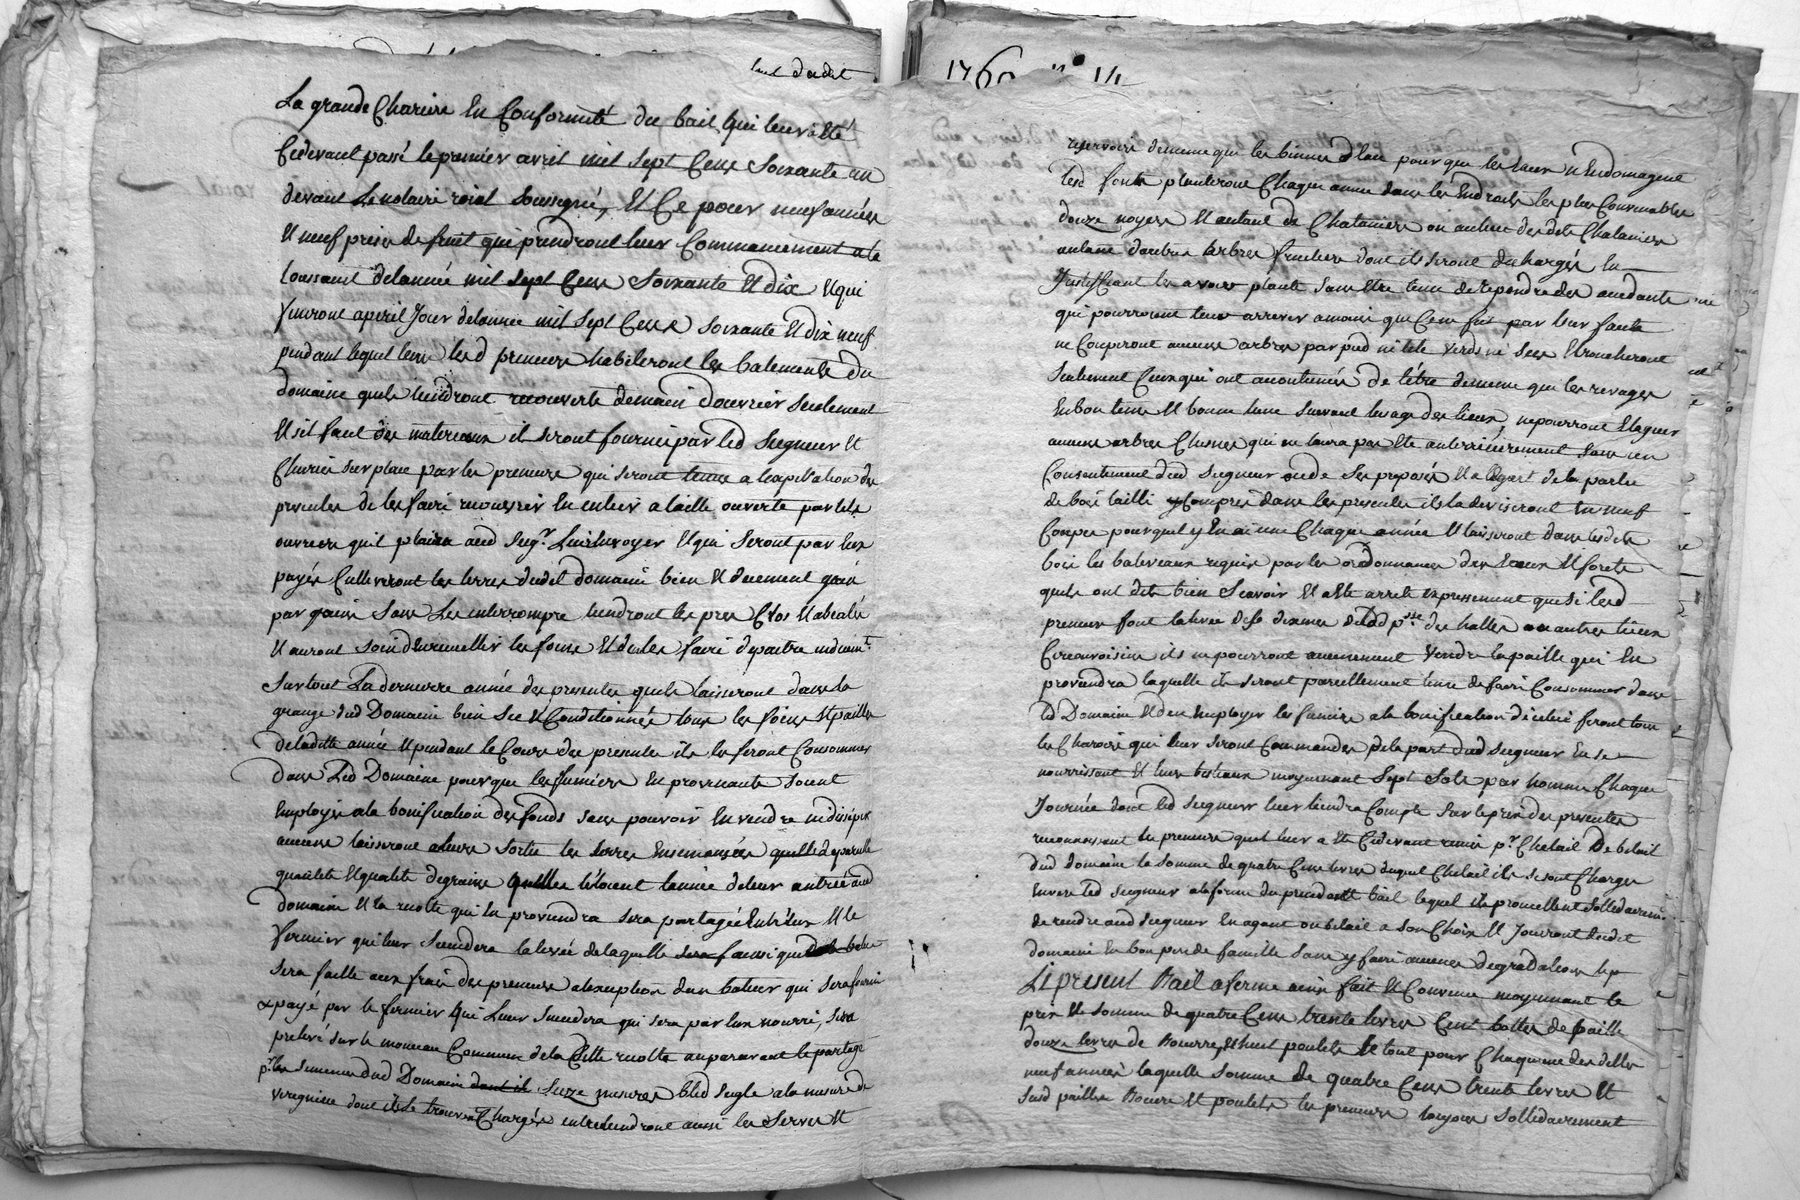 dudit
La grande Charière En Conformitté du bail qui leur a Eté
Cidevant passé le premier avril mil sept Cens Soixante un
devant Le notaire roial Soussigné, Et Ce pour neuf années
Et neuf prises de fruit qui prendront leur Commancement a la
toussaint delannée mil sept Cens Soixante Et dix Et qui
finiront apareil Jour delannée mil sept Cens soixante Et dix neuf
pendant lequel tems lesd preneurs habiteront les batements du
domaine quils tiendront recouverts demain d'ouvrier seulement
Et sil faut des materiaux il seront fournis par led Seigneur Et
Charies sur place par les preneurs qui seront tenus a lexpiration des
presentes de les faire recouvrir En entier a taille ouverte par tels
ouvriers quil plaira aud Seigr. Leur Envoyer Et qui seront par Eux
payés Cultiveront les terres dudit domaine bien Et duement gain
par gain sans Les interrompre tiendront les prés Clos Et
Et auront soin de recueillir les foins Et de les faire depaitre
sur tout La derniere année des presentes quils laisseront dans la
grange dud Domaine bien sec Et Conditionnés tous les foins Et pailles
deladitte année Et pendant le Cours du presente ils les feront Consommer
dans Led Domaine pour que les fumiers En provenants soient
Employés ala bonification des fonds sans pouvoir En vendre
aucuns laisseront aleur sortie les terres Ensemancées
quantité Et qualité degrains quelles létoient lannée deleur entrée aud
domaine Et la recolte qui En proviendra sera partagée Entr'Eux Et le
fermier qui leur succedera la levée de laquelle
sera faitte aux frais des preneurs alexeption dun bateur qui sera fourni
& payé par le fermier qui Leur succedera qui sera par Eux nourri, sera
prelevé sur le monceau Commun de la ditte recolte auparavant le partage
pr. les semences dud Domaine dont il seize mesures bled seigle ala mesure de
dont ils se trouvent Chargés entretiendront aussi les Serves Et
1769
reservoirs demême que les bieves d'eau pour que les eaux n'Endomagent
lesd fonts planteront Chaque année dans les Endroits les plus Convenables
douze noyers Et autant de Chataniers ou aulieu desdits Chataniers
autant d'autres arbres fruitiers dont ils seront dechargés En
Justiffiant les avoir planté sans Etre tenus de repondre des accidants
qui pourroient leur arriver amoins que Cene fut par leur faute
ne Couperont aucuns arbres par pied ni tete verds ni secs Et troncheront
seulement Ceux qui ont accoutumés de l'être demême que les
En bon tems Et bonne lune suivant lusage des lieux, ne pourront Elaguer
aucuns arbres Chesnes qui ne laura pas Eté anterrieurement sans un
Consentement dud seigneur ou de ses preposés Et a l'Egart de la partie
de bois taillis y Compris dans les presentes ils la diviseront En neuf
Coupes pour quil y En ai une Chaque année Et laisseront dans lesdits
bois les baliveaux requis par les ordonnances des Eaux Et forets
quils ont dit bien scavoir Et a Eté arreté expressement que si lesd
preneurs font la levée
Circonvoisins ils ne pourront aucunement vendre la paille qui En
proviendra laquelle ils seront pareillement tenus de faire Consommer dans
led Domaine Et d'en Employer les fumiers ala bonification d'icelui feront tous
les Charois qui leur seront Commandés de la part dud seigneur En se
nourrissant Et leurs bestiaux moyennant sept sols par homme Chaque
Journée dont led seigneur leur tiendra Compte sur le prix des presentes
reconnoissent les preneurs quil leur a Eté Cidevant remis pr. Chetail De bétail
dud domaine la somme de quatre Cens livres duquel Chetail ils se sont Chargés
Envers led seigneur ala forme du precedant bail lequel ils promettent sollidairemt.
de rendre aud seigneur En argent ou bétail a son Choix Et Jouiront dudit
domaine En bon pere de famille sans y faire aucunes degradations
Le present Bail aferme ainsi fait Et Convenu moyennant le
prix Et somme de quatre Cens trente livres Cent bottes de paille
douze livres de Beurre, Et huit poulets le tout pour Chaquune desdittes
neuf années laquelle somme de quatre Cens trente livres Et
susd pailles Beurre Et poulets les preneurs toujours sollidairement